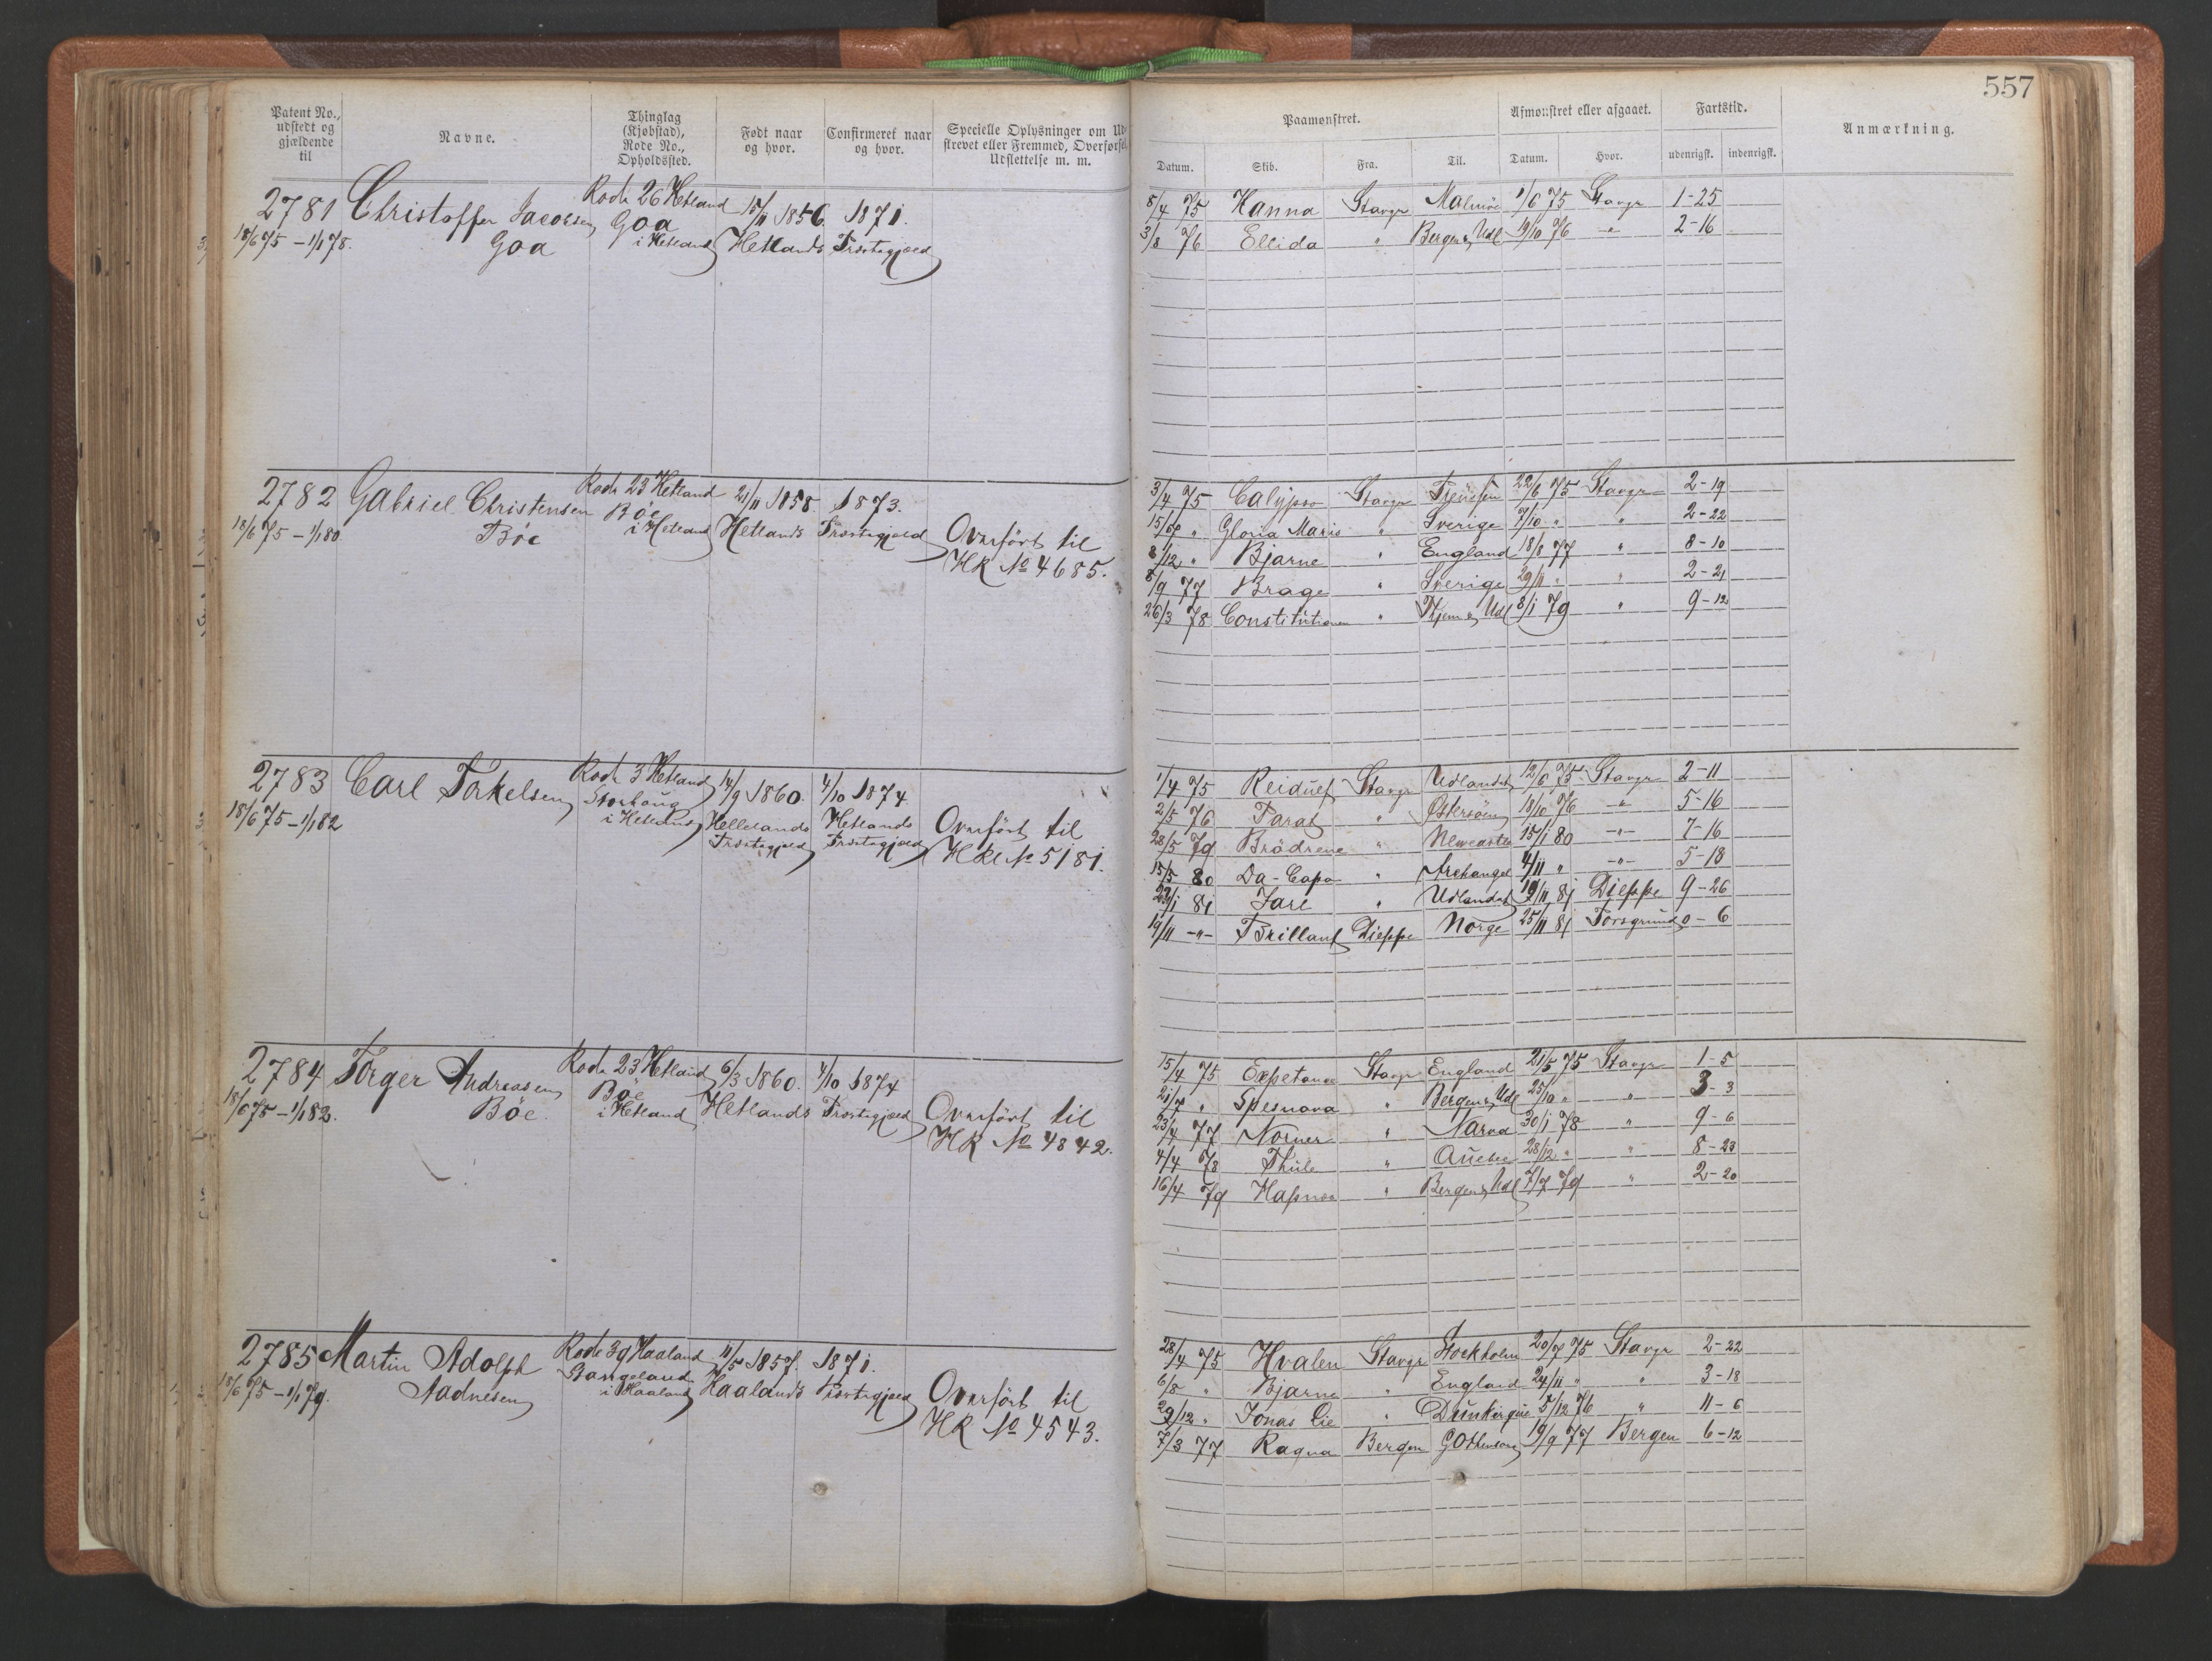 557
Patent No., udstedt og gjældende til
Navne.
Thinglag (Kjøbstad), Rode No., Opholdssted.
Født naar og hvor.
Confirmeret naar og hvor.
Specielle Oplysninger om Udskrevet eller Fremmed, Overførsel, Udslettelse m. m.
Paamønstret.
Afmønstret eller afgaaet.
Fartstid.
Anmærkning.
Datum. Skib. Fra. Til. Datum. Hvor. udenrigsk. indenrigsk.
2781 Christoffer Jacobsen Rode 26 Hetland 15/11 1856. 1871.
18/6 75 – 1/1 78. Goa Goa i Hetland Hetlands Præstegjæld
8/4 75 Hanna Stavgr Malmöe 1/6 75 Stavgr 1-25
3/8 76 Ellida " Bergen & Udl 19/10 76 -"- 2-16
2782 Gabriel Christensen Rode 23 Hetland 21/11 1858. 1873.
18/6 75 – 1/1 80 Böe Böe i Hetland Hetlands Præstegjæld Overfört til
HR No 4685.
3/4 75 Calypso Stavgr 22/6 75 Stavgr 2-19
15/7 " Gloria Maris " Sverige 7/10 " " 2-22
8/12 " Bjarne " England 18/8 77 " 8-10
8/9 77 Brage " Sverige 29/11 " " 2-21
26/3 78 Constitutionen " Thjem & Udl 8/1 79 " 9-12
2783 Carl Torkelsen Rode 3 Hetland 14/9 1860. 4/10 1874
18/6 75 – 1/1 82 Storhaug i Hetland Hellelands Præstegjæld Hetlands Præstegjæld Overfört til
HR No 5181.
1/4 75 Reidulf Stavgr Udlandet 12/6 75 Stavgr 2-11
2/5 76 Parat " Östersöen 18/10 76 -"- 5-16
28/5 79 Brödrene " Newcastle 15/1 80 -"- 7-16
15/5 80 Da-Capo " Archangel 4/11 " -"- 5-18
23/1 81 Jarl " Udlandet 19/11 81 Dieppe 9-26
19/11 -"- Brillant Dieppe Norge 25/11 81 Porsgrund 0-6
2784 Torger Andreasen Rode 23 Hetland 6/3 1860. 4/10 1874
18/6 75 – 1/1 82. Böe. Böe i Hetland Hetlands Præstegjæld Overfört til
HR No 4842.
15/4 75 Expetance Stavgr England 21/5 75 Stavgr 1-5
21/7 " Spesnova " Bergen & Udl 25/10 " " 3-3
23/4 77 Norner " Narva 30/1 78 " 9-6
4/4 78 Thule " Quebec 28/12 " " 8-23
16/4 79 Hafnoe " Bergen & Udl 7/7 79 " 2-20
2785 Martin Adolph Rode 39 Haaland 11/5 1857. 1871.
18/6 75 – 1/1 79. Aadnesen Stangeland i Haaland Haalands Præstegjæld Overfört til
HR No 4543.
28/4 75 Hvalen Stavgr Stockholm 20/7 75 Stavgr 2-22
6/8 " Bjarne " England 24/11 " " 3-18
29/12 " Jonas Lie " Dunkerque 5/12 76 " 11-6
7/3 77 Ragna Bergen Gothenborg 19/9 77 Bergen 6-12